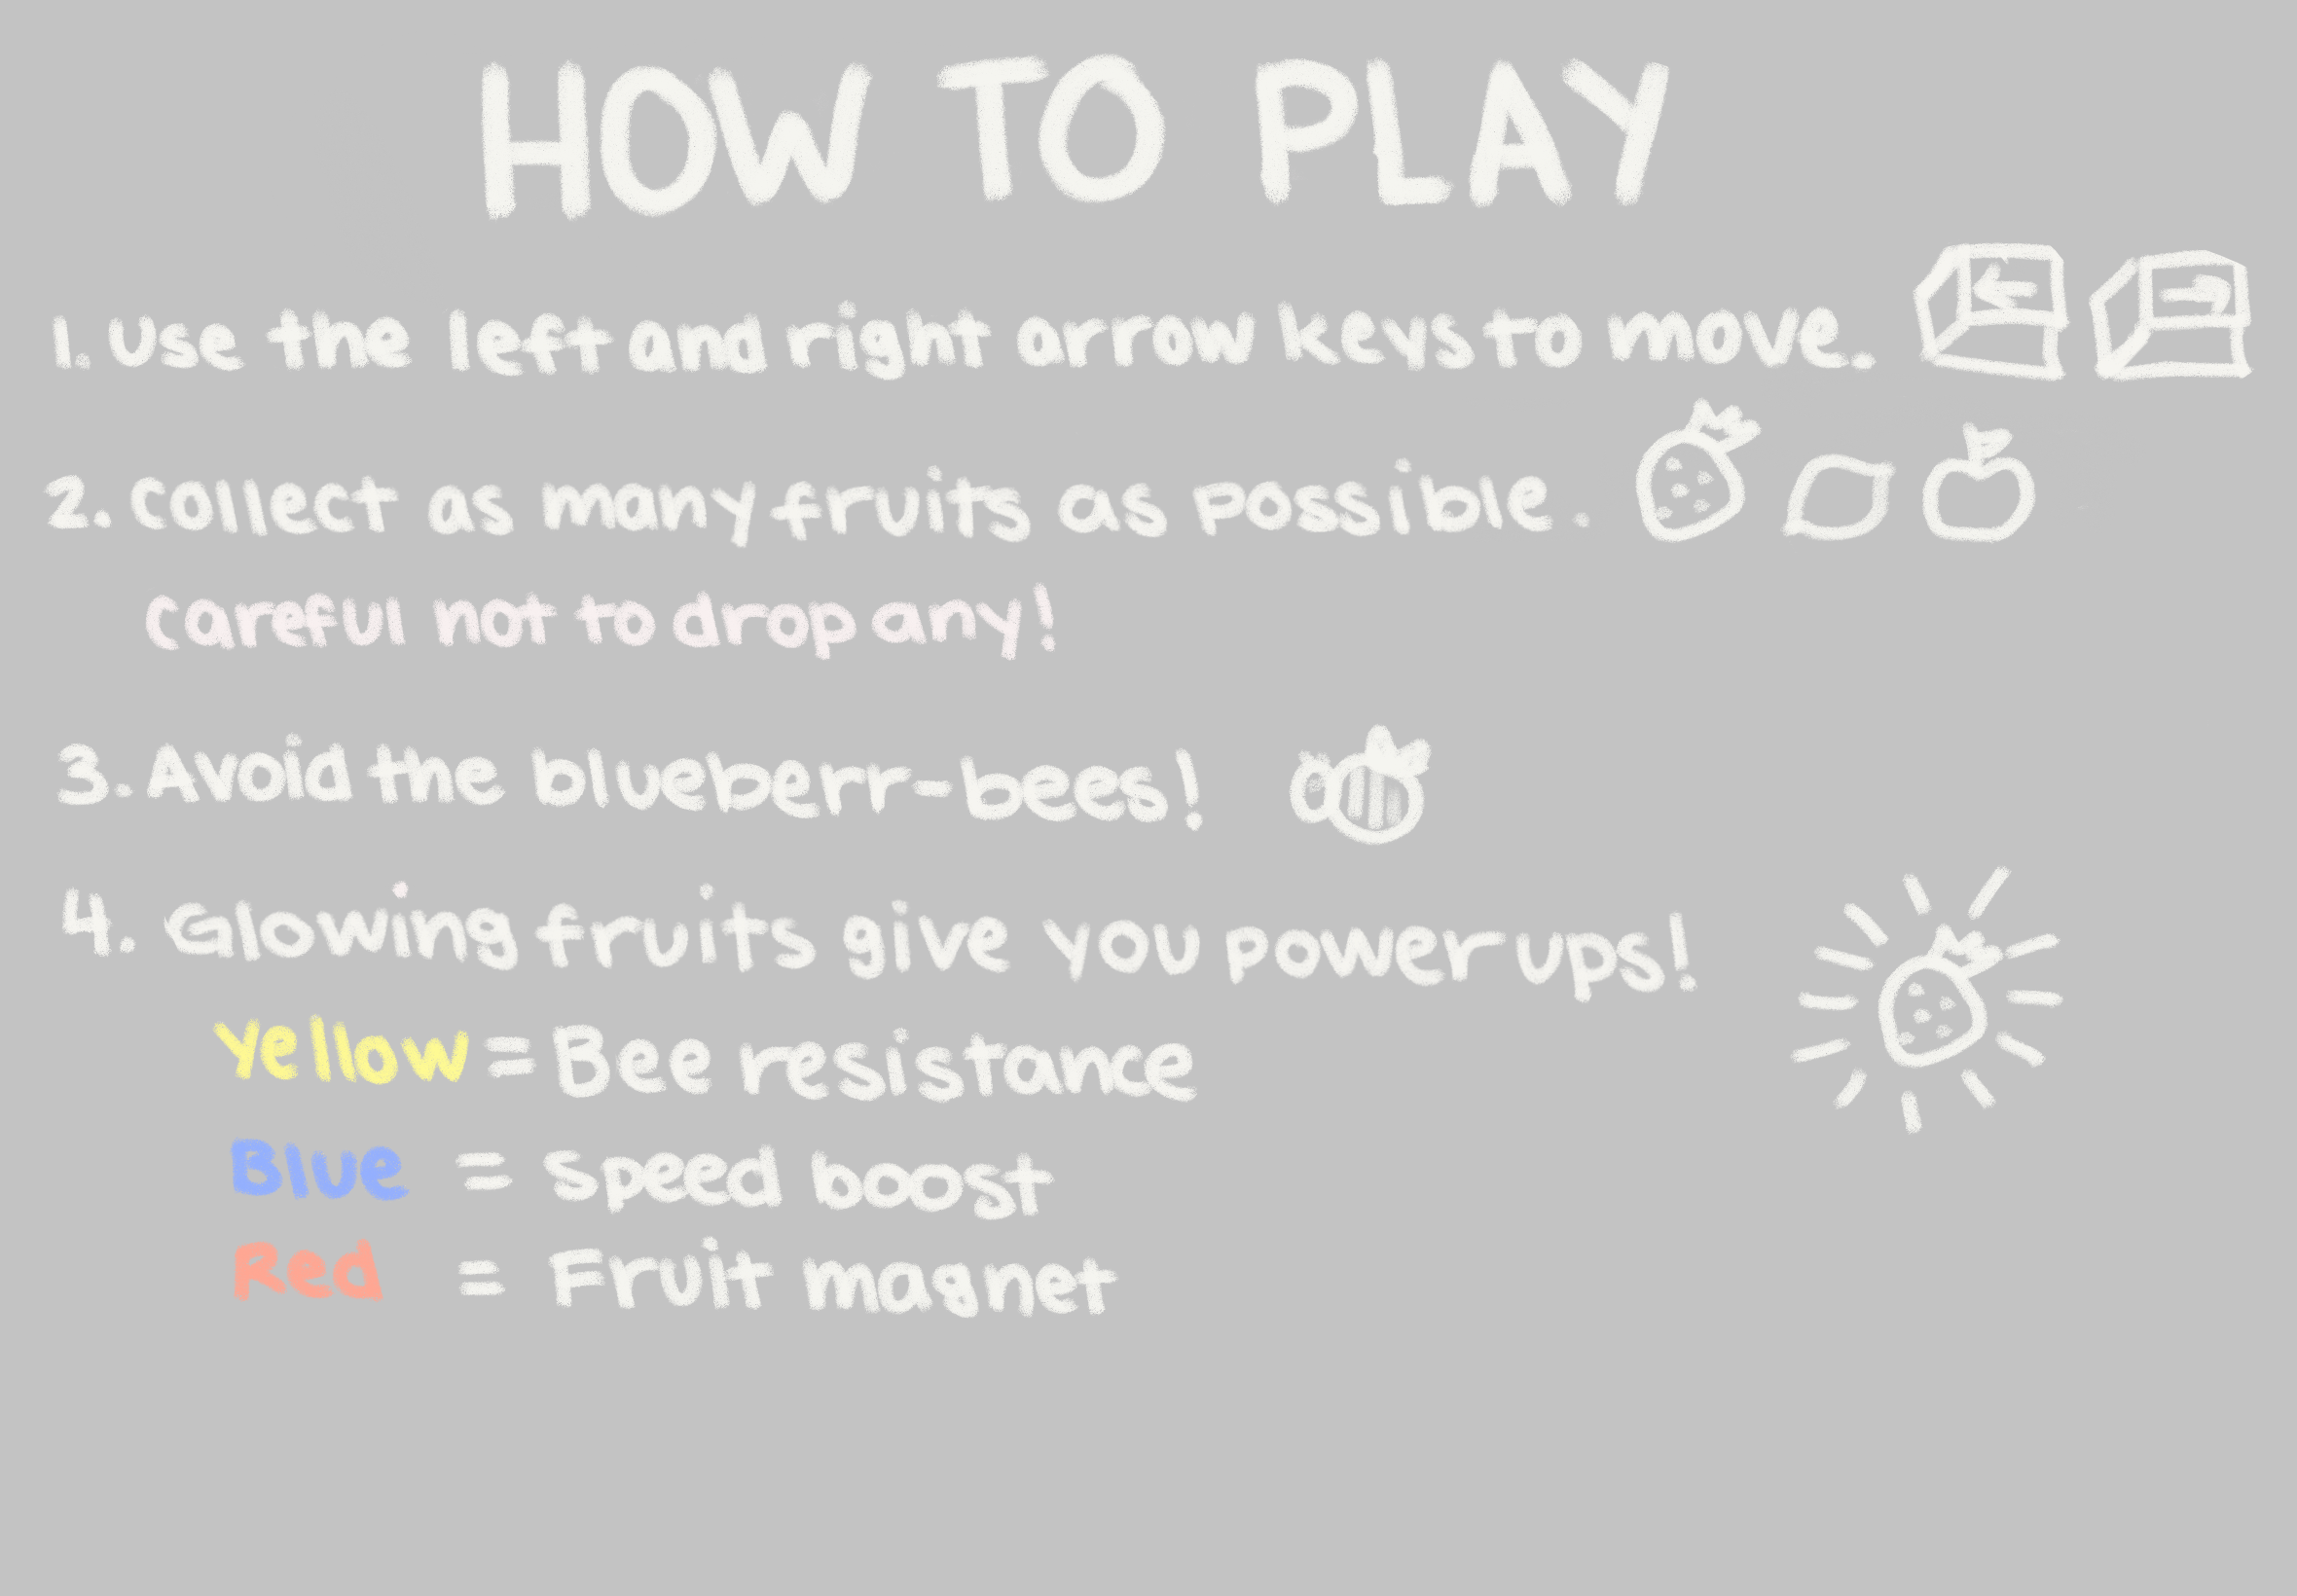 HOW TO PLAY
1. Use the left and right arrow keys to move.
2. Collect as many fruits as possible.
careful not to drop any!
3. Avoid the blueberr-bees!
4. Glowing fruits give you power ups!
Yellow = Bee resistance
Blue = Speed boost
Red = Fruit magnet